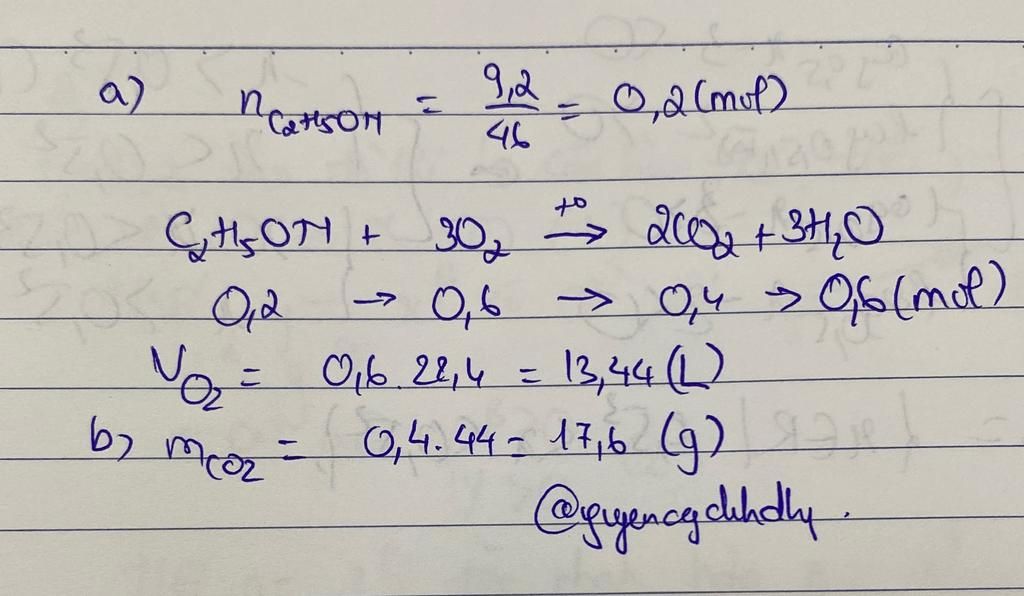 a) nC2H5OH = 9,2/46 = 0,2 (mol)
C2H5OH + 3O2 t° → 2CO2 + 3H2O
0,2 → 0,6 → 0,4 → 0,6 (mol)
VO2 = 0,6. 22,4 = 13,44 (L)
b) mCO2 = 0,4. 44 = 17,6 (g)